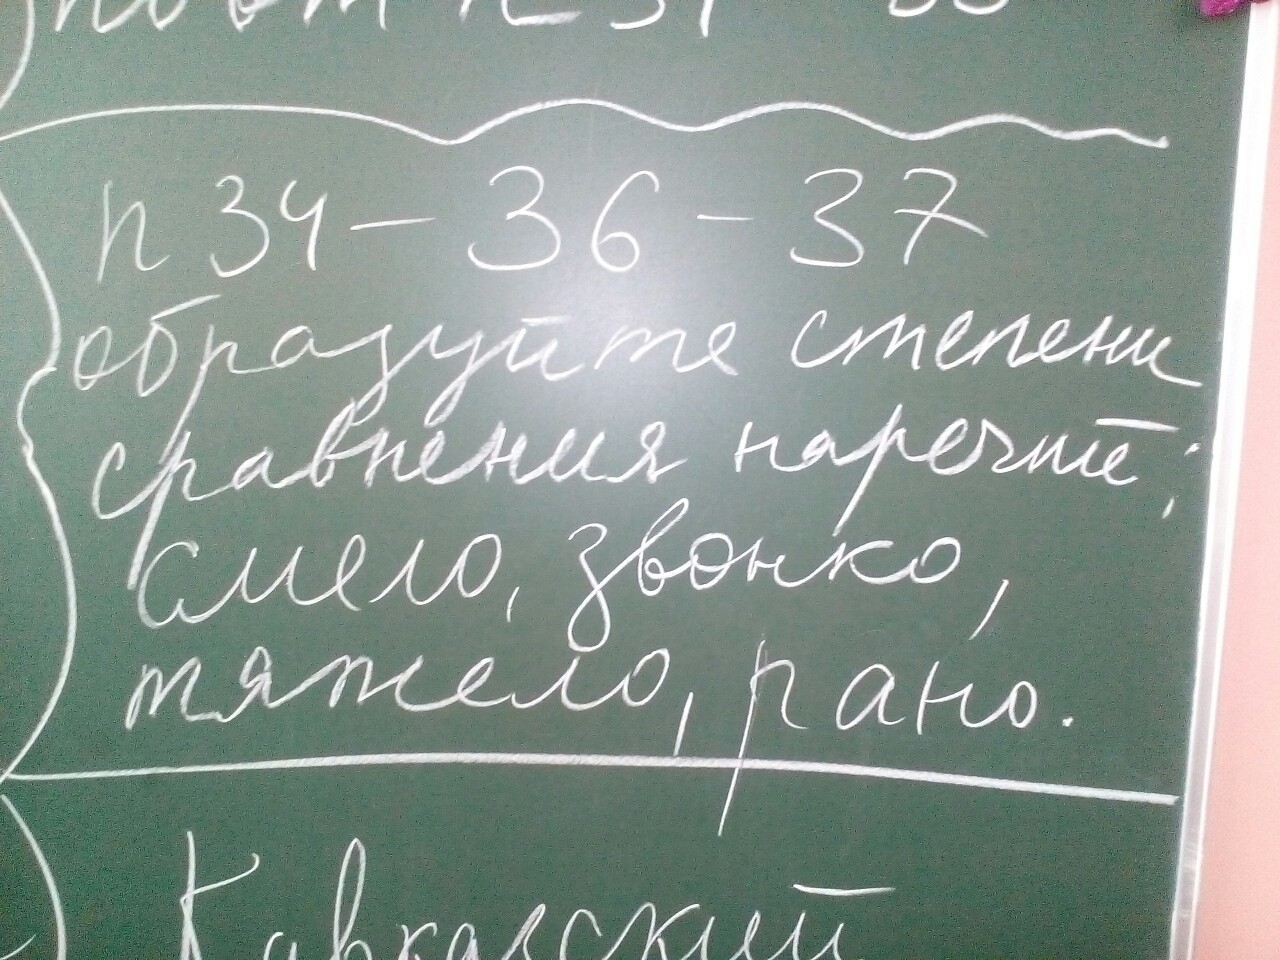 п 34 – 36 – 37
образуйте степени
сравнения наречий:
смело, звонко,
тяжело, рано.
Кавказский